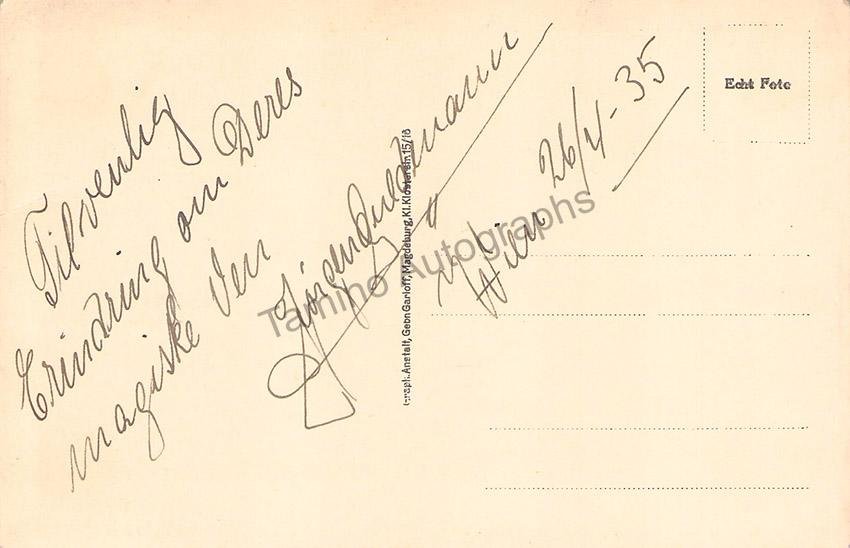 Til venlig
Erindring om Deres
magiske Ven
Wien 26/4-35
Echt Foto
Graph. Anstalt, Gebr. Garloff, Magdeburg, Kl. Klosterstr. 15/16
Tamino Autographs